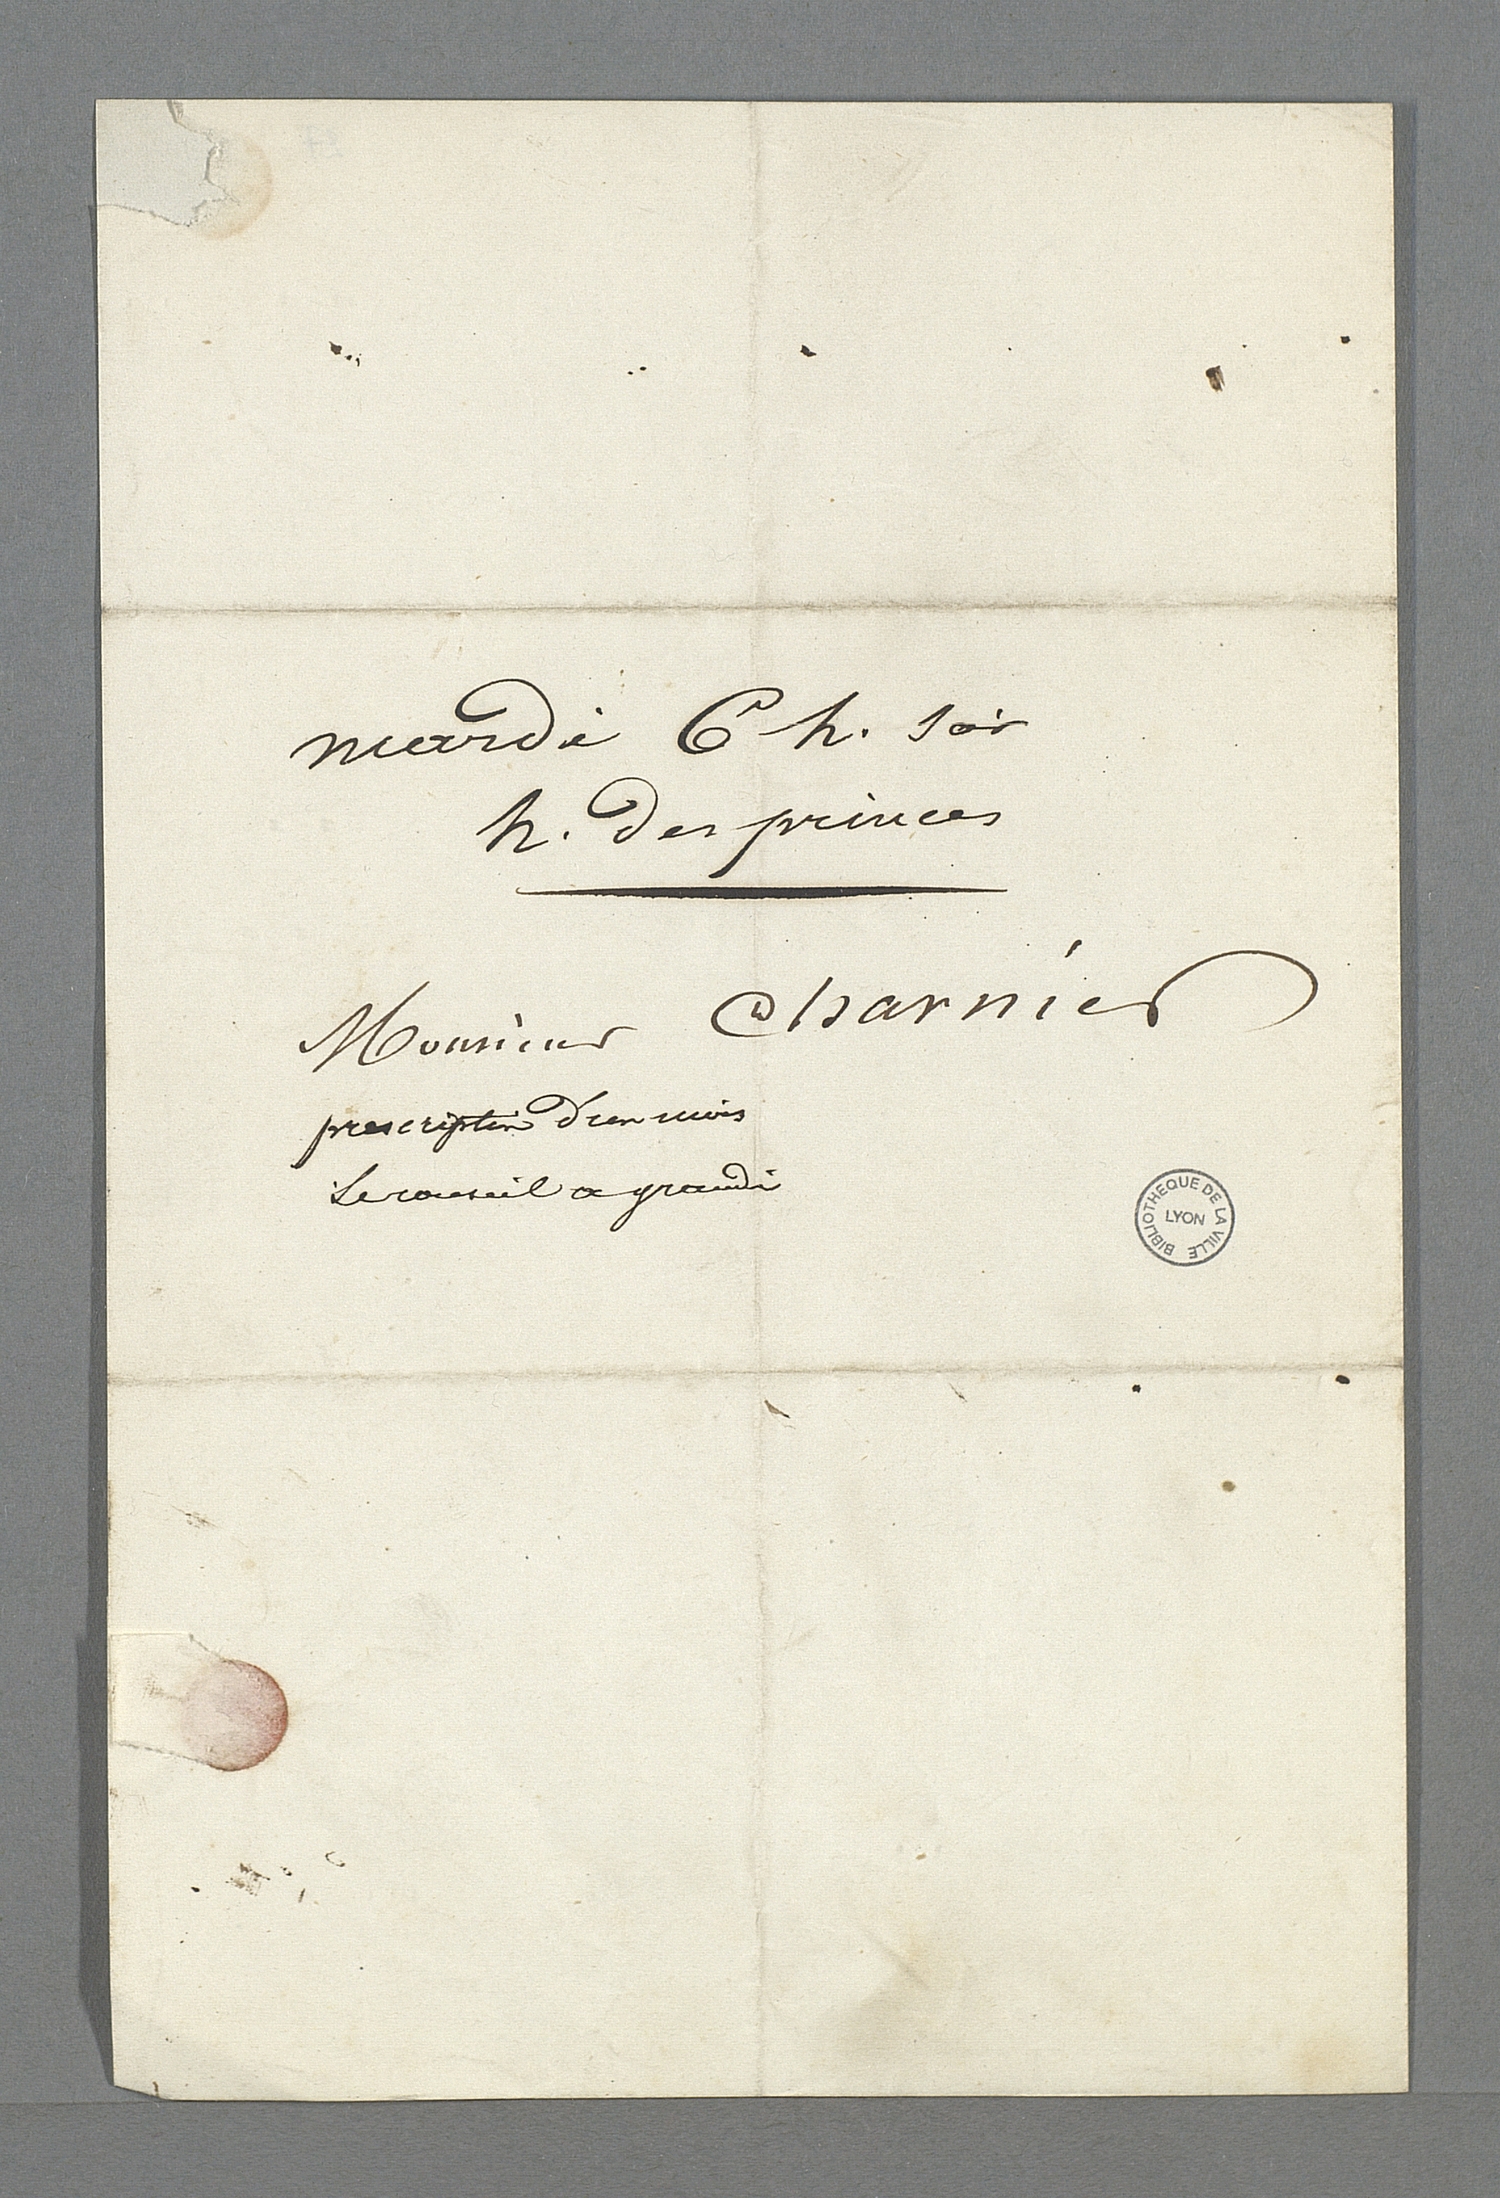 mardi 6 h. soir
h. des princes
Monsieur Charnier
prescription d'un mois
Le conseil a grandi
BIBLIOTHEQUE DE LA VILLE
LYON